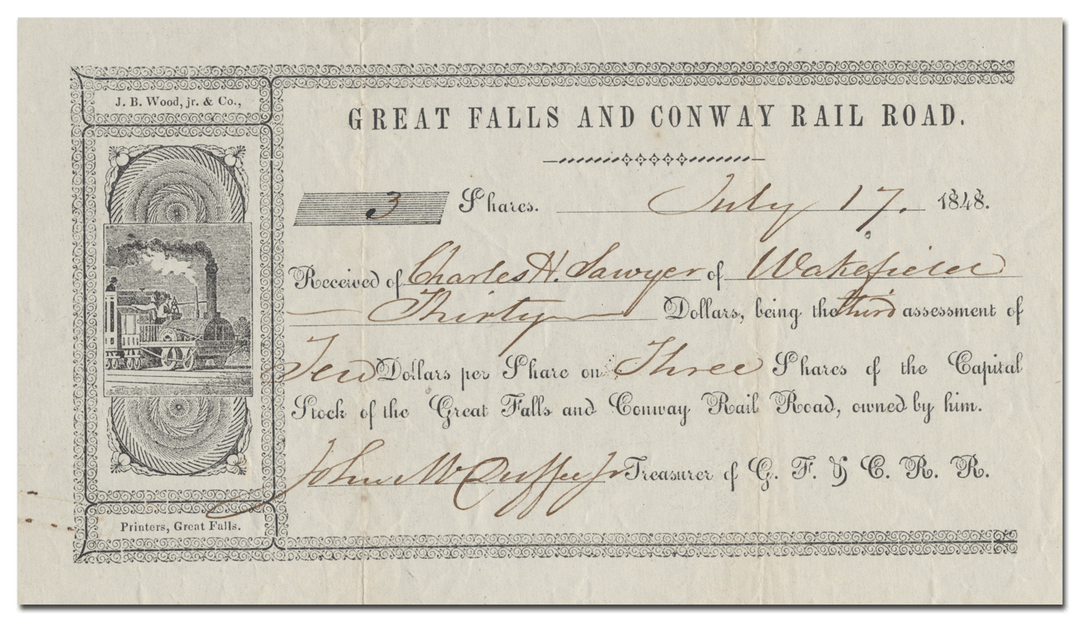 J. B. Wood, jr. & Co.,
GREAT FALLS AND CONWAY RAIL ROAD.
3 Shares. July 17, 1848.
Received of Charles H. Sawyer of Wakefield
Thirty Dollars, being the third assessment of
Ten Dollars per Share on Three Shares of the Capital
Stock of the Great Falls and Conway Rail Road, owned by him.
John McDuffee Jr Treasurer of G. F. & C. R. R.
Printers, Great Falls.